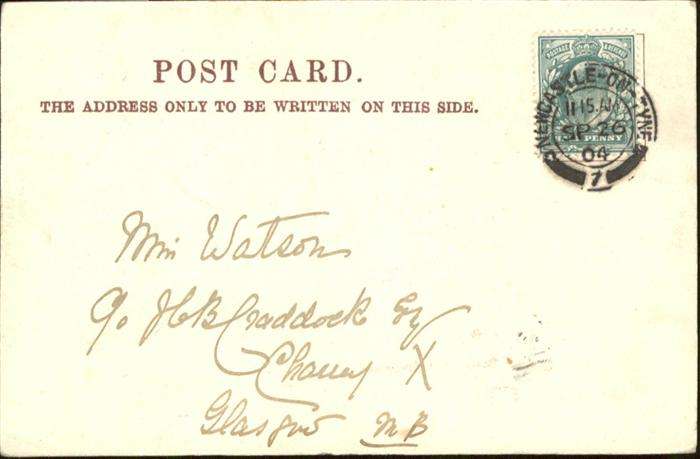 POST CARD.
THE ADDRESS ONLY TO BE WRITTEN ON THIS SIDE.
POSTAGE REVENUE
PENNY
NEWCASTLE-ON-TYNE
11 15 AM
SP 26
04
7
Miss Watson
c/o J C B Craddock Esq
Charing X
Glasgow NB